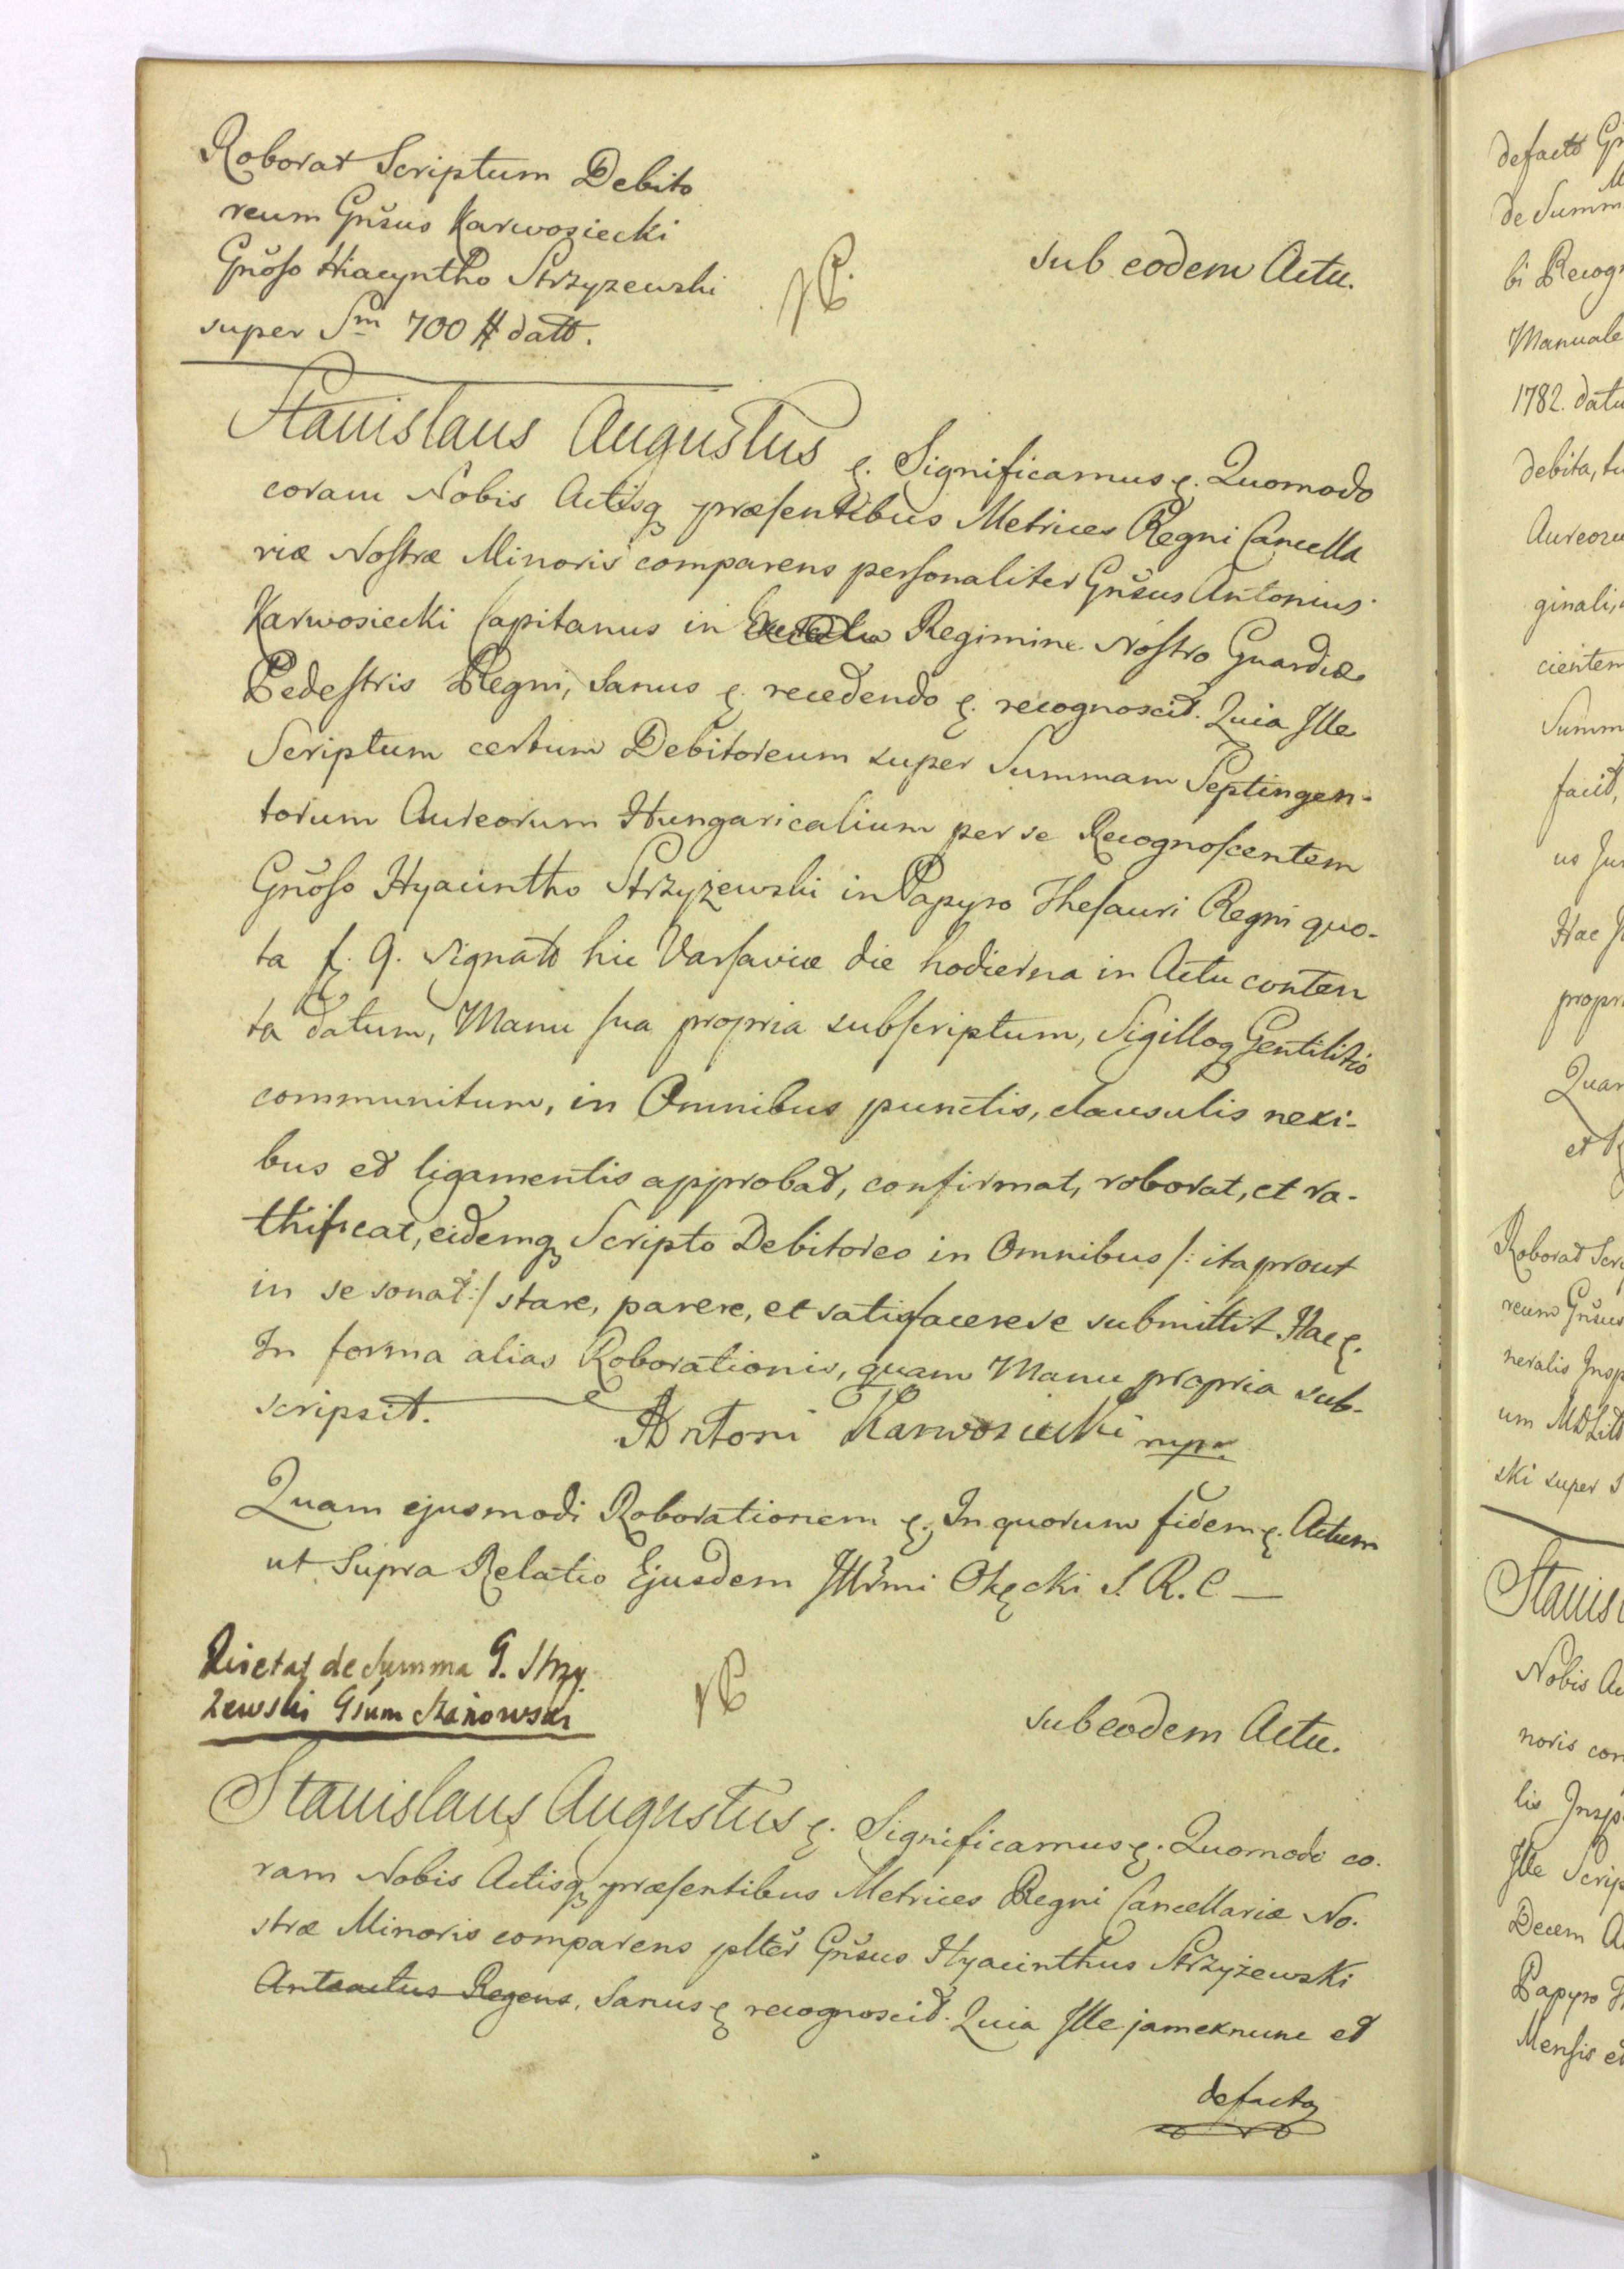 Roborat Scriptum Debito
reum Gnŭsus Karwosiecki
Gnŏso Hiacyntho Strzyzewski
super Sm 700 # datt.
sub eodem Actu.
Stanislaus Augustus &. Significamus &. Quomodo
coram Nobis Actisq præsentibus Metrices Regni Cancella
riæ Nostræ Minoris comparens personaliter Gnŭsus Antonius
Karwosiecki Capitanus in Regimine Nostro Guardiæ
Pedestris Regni, Sanus &. recedendo &. recognoscit. Quia Ille
Scriptum certum Debitoreum super Summam Septingen-
torum Aureorum Hungaricalium per se Recognoscentem
Gnŏso Hyacintho Strzyżewski in Papyro Thesauri Regni quo-
ta f. 9. signato hic Varsaviæ die hodierna in Actu conten
ta datum, Manu sua propria subscriptum, Sigilloq Gentilitio
communitum, in Omnibus punctis, clausulis nexi-
bus et ligamentis approbat, confirmat, roborat, et ra-
thificat, eidemq Scripto Debitoreo in Omnibus /: ita prout
in se sonat :/ stare, parere, et satisfacere se submittit. Hac &.
In forma alias Roborationis, quam Manu propria sub-
scripsit.
Antoni Karwosiecki mpr.
Quam ejusmodi Roborationem &. In quorum fidem &. Actum
ut Supra Relatio Ejusdem Illrmi Okęcki S. R. C —
de Summa G. Strzy
żewski Gsum
sub eodem Actu.
Stanislaus Augustus &. Significamus &. Quomodo co-
ram Nobis Actisq præsentibus Metrices Regni Cancellariæ No-
stræ Minoris comparens plter Gnŭsus Hyacinthus Strzyżewski
Anteactus Regens, Sanus & recognoscit. Quia Ille jam ex nunc et
defacto
defacto
de Summ
bi Recog
Manuale
1782. datu
debita, tu
ginali,
cientem
Summ
facit,
us Ju
Hac
propri
Quam
et
Roborat Scr
reum Gnŭsus
neralis Insp
ski super S
Stanisl
Nobis Ac
noris com
lis Insp
Ille Scrip
Decem A
Papyro
Mensis et